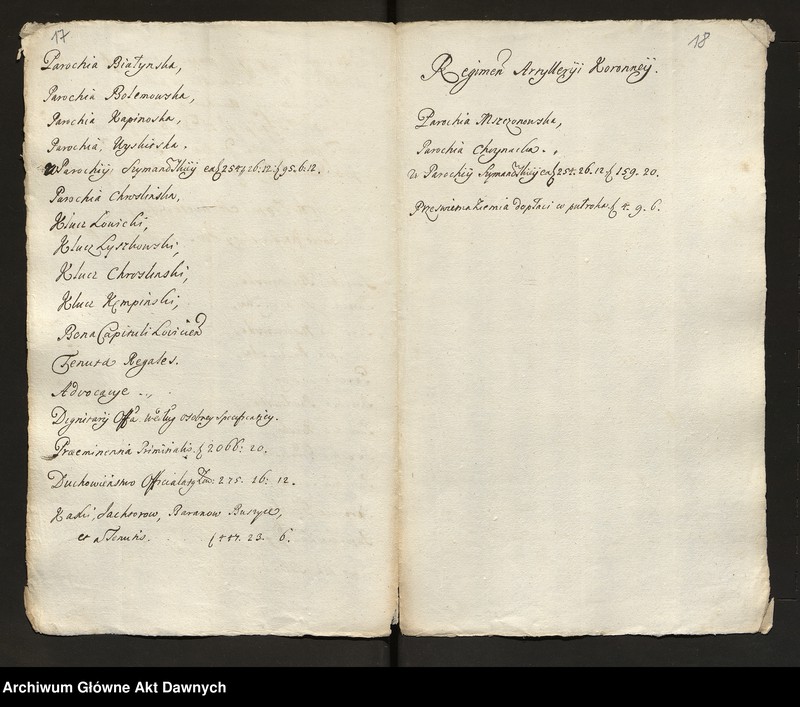 17
Parochia Białynska,
Parochia Bolemowska,
Parochia Kapinoska,
Parochia Kyskieska.
w Parochiij Szymanowskiij ex f 254, 26: 12: f 95. 6. 12.
Parochia Chroslinska,
Klucz Lowicki,
Klucz Lyszkowski,
Klucz Chroslinski,
Klucz Kempinski,
Bona Capituli Lovicien
Tenuta Regales.
Advocacye . „ .
Dignitarij Offa. według osobney specyfikacyi.
Praeeminentia Primitialis. f 2066: 20.
Duchowienstwo Officialatg Low: 275. 16: 12.
Kaski, Jacktorow, Baranow Buszyce,
et a Tenutis. f 447. 23. 6.
18
Regimen Artylleryi Koronneij.
Parochia Mszczonowska,
Parochia Choynacka. „
w Parochij Szymanowskiij ex f 254. 26. 12. f 159. 20.
Prześwietna Ziemia dopłaci w putroku f 4. 9. 6.
Archiwum Główne Akt Dawnych